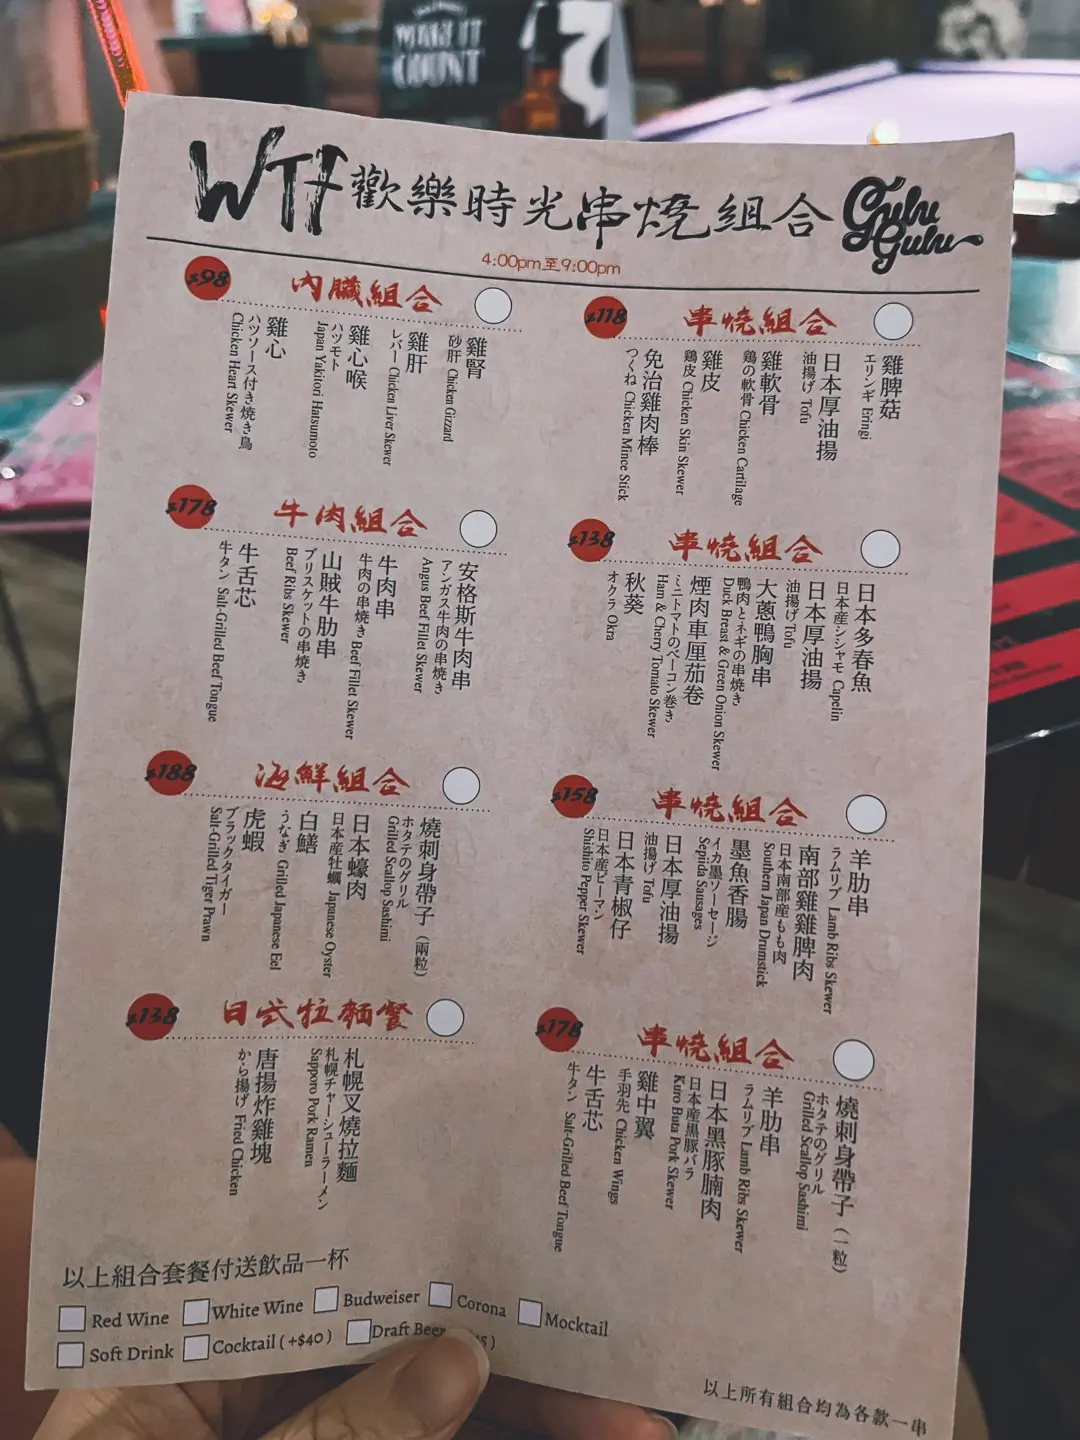 MAKE IT
COUNT
7
WTF歡樂時光串燒組合
Gulu Gulu
4:00pm至9:00pm
$98
內臟組合
雞腎
砂肝 Chicken Gizzard
雞肝
レバー Chicken Liver Skewer
雞心喉
ハツモト
Japan Yakitori Hatsumoto
雞心
ハツソース付き焼き鳥
Chicken Heart Skewer
$118
串燒組合
雞脾菇
エリンギ Eringi
日本厚油揚
油揚げ Tofu
雞軟骨
鶏の軟骨 Chicken Cartilage
雞皮
鶏皮 Chicken Skin Skewer
免治雞肉棒
つくね Chicken Mince Stick
$178
牛肉組合
安格斯牛肉串
アンガス牛肉の串焼き
Angus Beef Fillet Skewer
牛肉串
牛肉の串焼き Beef Fillet Skewer
山賊牛肋串
ブリスケットの串焼き
Beef Ribs Skewer
牛舌芯
牛タン Salt-Grilled Beef Tongue
$138
串燒組合
日本多春魚
日本産シシャモ Capelin
日本厚油揚
油揚げ Tofu
大蔥鴨胸串
鴨肉とネギの串焼き
Duck Breast & Green Onion Skewer
煙肉車厘茄卷
ミニトマトのベーコン巻き
Ham & Cherry Tomato Skewer
秋葵
オクラ Okra
$188
海鮮組合
燒刺身帶子（兩粒）
ホタテのグリル
Grilled Scallop Sashimi
日本蠔肉
日本産牡蠣 Japanese Oyster
白鱔
うなぎ Grilled Japanese Eel
虎蝦
ブラックタイガー
Salt-Grilled Tiger Prawn
$158
串燒組合
羊肋串
ラムリブ Lamb Ribs Skewer
南部雞雞脾肉
日本南部産もも肉
Southern Japan Drumstick
墨魚香腸
イカ墨ソーセージ
Sepiida Sausages
日本厚油揚
油揚げ Tofu
日本青椒仔
日本産ピーマン
Shishito Pepper Skewer
$138
日式拉麵餐
札幌叉燒拉麵
札幌チャーシューラーメン
Sapporo Pork Ramen
唐揚炸雞塊
から揚げ Fried Chicken
$178
串燒組合
燒刺身帶子（一粒）
ホタテのグリル
Grilled Scallop Sashimi
羊肋串
ラムリブ Lamb Ribs Skewer
日本黑豚腩肉
日本産黒豚バラ
Kuro Buta Pork Skewer
雞中翼
手羽先 Chicken Wings
牛舌芯
牛タン Salt-Grilled Beef Tongue
以上組合套餐付送飲品一杯
Red Wine White Wine Budweiser Corona Mocktail
Soft Drink Cocktail (+$40) Draft Beer
以上所有組合均為各款一串